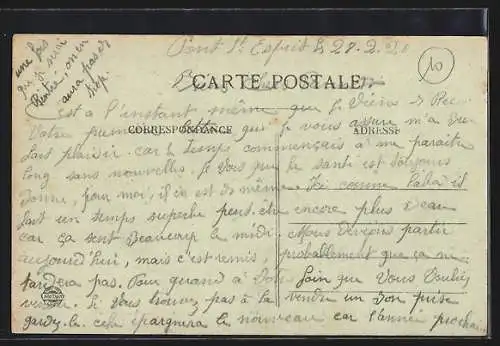 Pont St Esprit 27.2.20
une fois
que je serai
Rentré, on en
aura pas de
trop
10
CARTE POSTALE
est à l'instant même que je Viens de Rec
Votre premi lettre qui je vous assure m'a
CORRESPONDANCE ADRESSE
fait plaisir. car le temps commençais à me paraitre
long sans nouvelles. Je Vois que la santé est toujours
bonne, pour moi, il en est de même. Ici comme labas il
fait un temps superbe peut-être encore plus beau
car ça sent Beaucoup le midi. Nous devions partir
aujourd'hui, mais c'est remis, probablement que ça ne
tardera pas. Pour quand à foin que Vous Vouliez
vendre. Si vous trouvez pas à la vendre un bon prix
gardez-le cela épargnera le nouveau car l'année procha